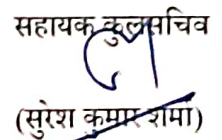 सहायक कुलसचिव
(सुरेश कुमार शर्मा)